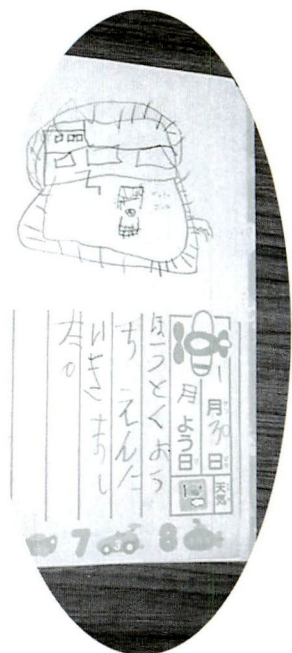 1月30日
月よう日
天気
ほうとくよう
ちえんに
いきまし
た。
7 8